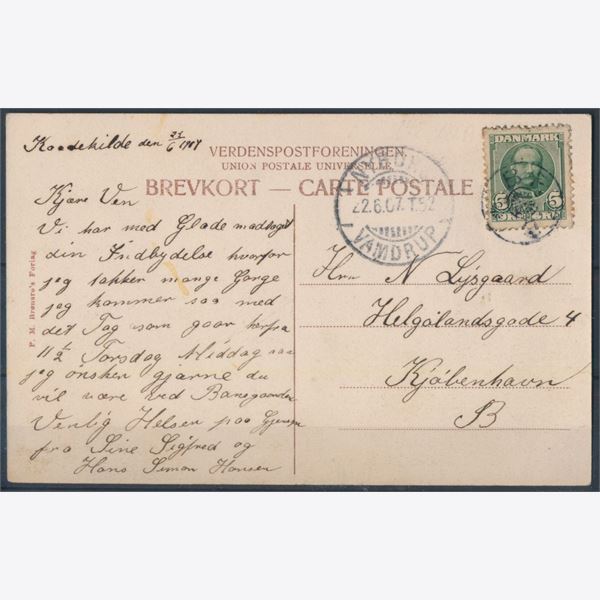 VERDENSPOSTFORENINGEN
UNION POSTALE UNIVERSELLE
BREVKORT — CARTE POSTALE
DANMARK
5 5
22.6.07.
VAMDRUP
den 21/6 1907
Kjære Ven
Vi har med Glæde modtaget
din Indbydelse hvorfor
jeg takker mange Gange
jeg kommer saa med
det Tog som gaar herfra
11 1/2 Torsdag Middag saa
jeg ønsker gjærne du
vil være ved Banegaarden
Venlig Helsen paa
fra Sine Sigfred og
Hans Simon Hansen
Hrn N Lysgaard
Helgolandsgade 4
Kjøbenhavn
B
F. M. Brønsro's Forlag